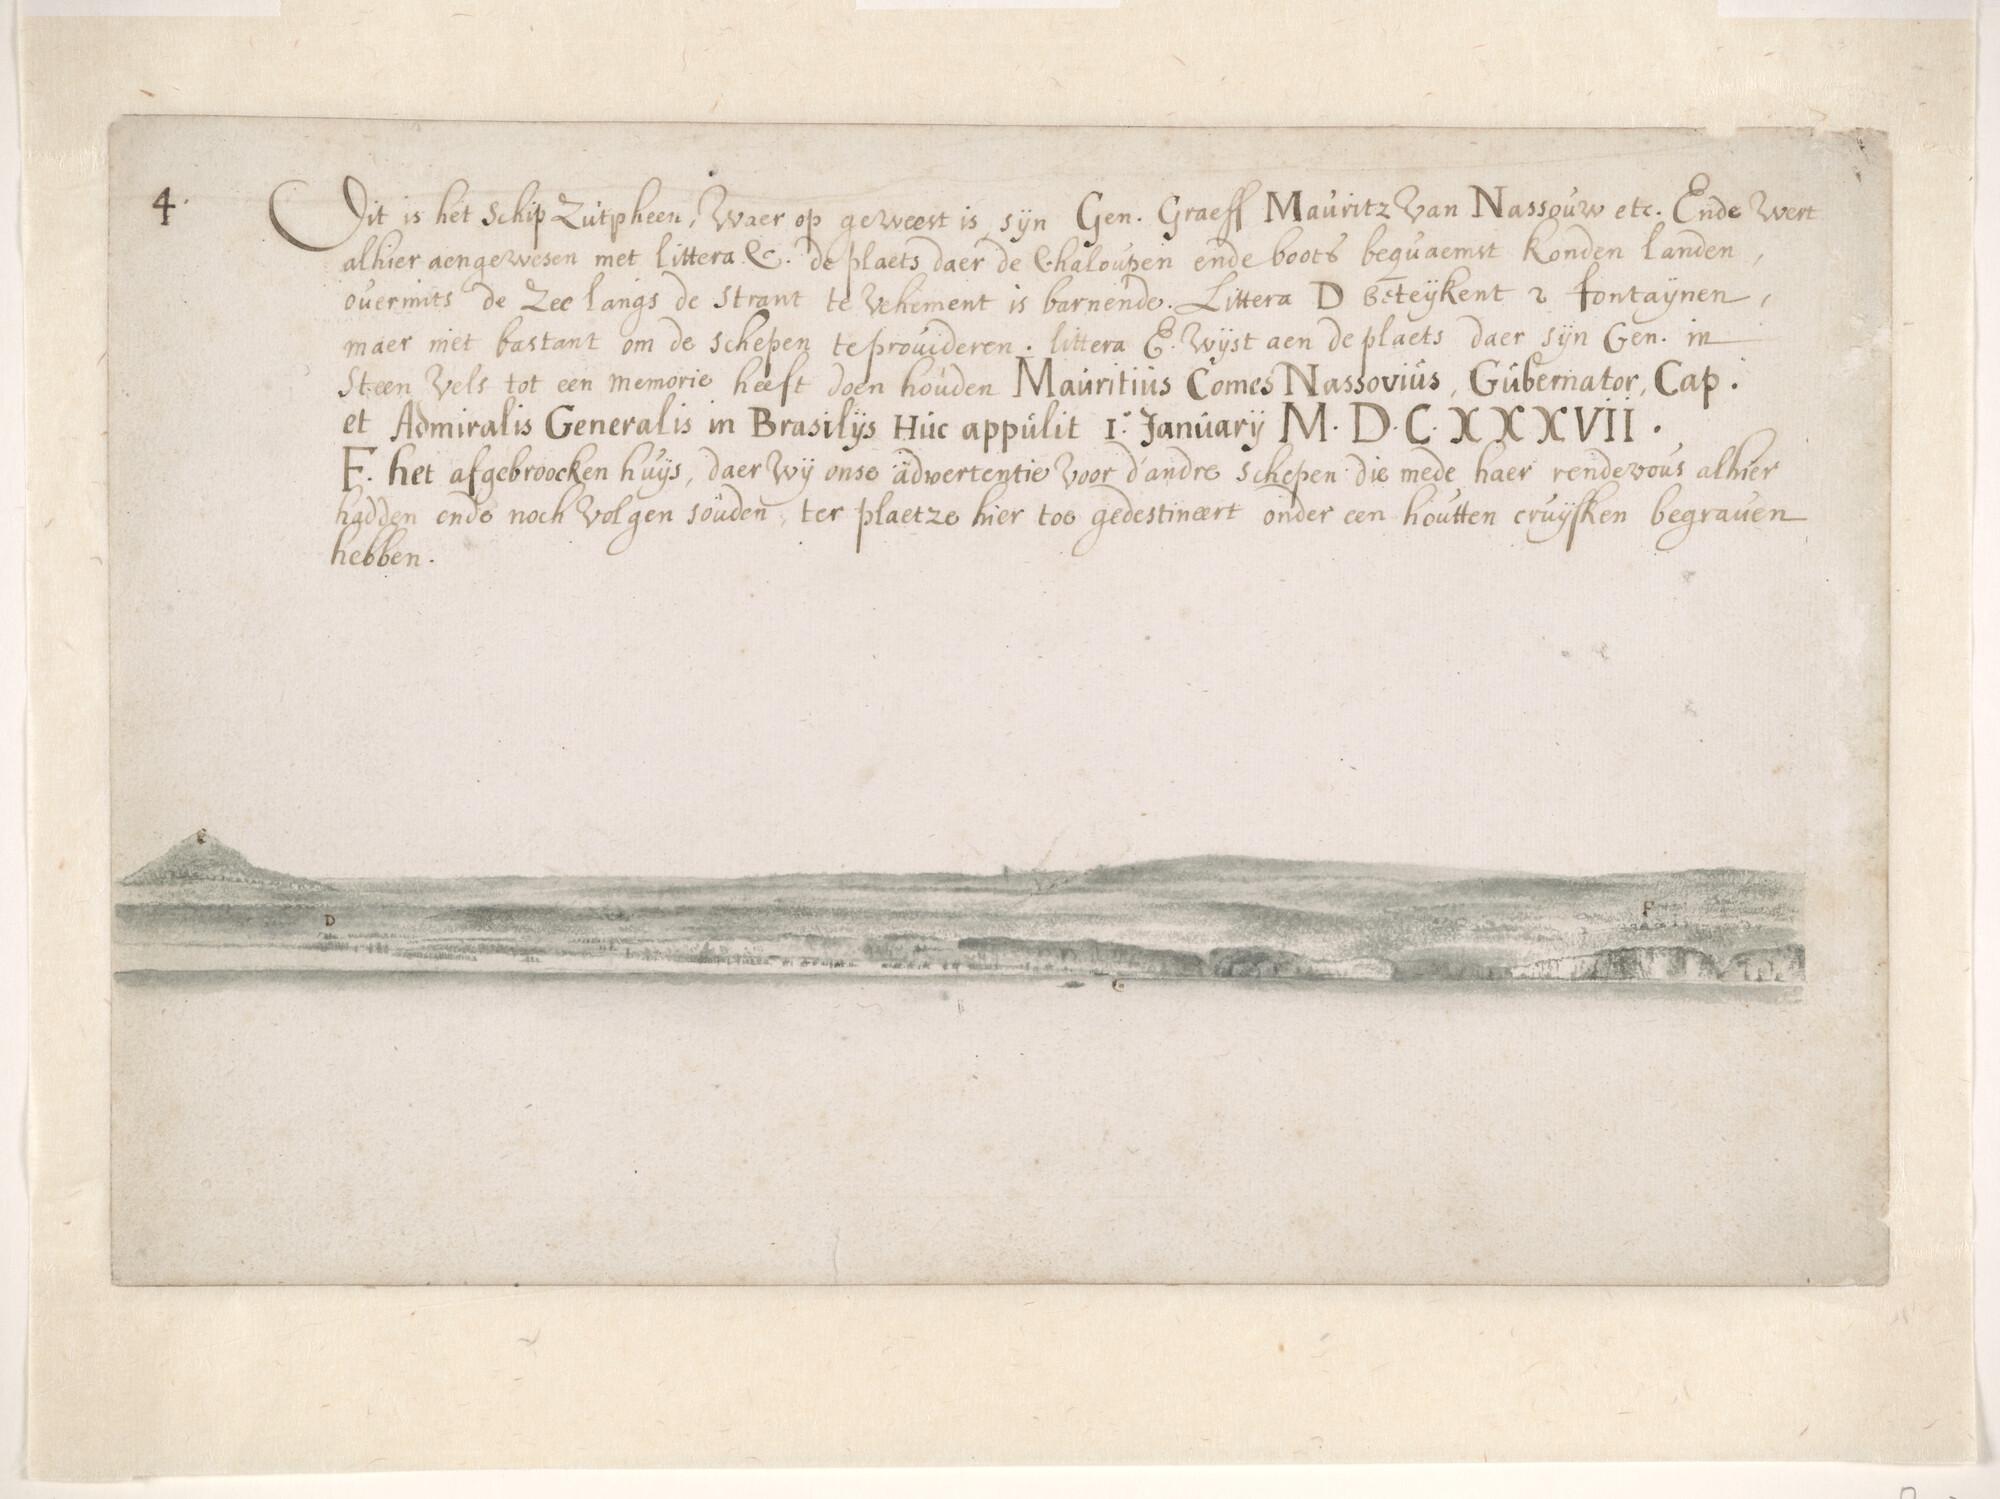 4.
Dit is het Schip Zutpheen, Waer op geweest is, sÿn Gen. Graeff Mauritz Van Nassouw etc. Ende Wert
alhier aengewesen met littera C. de plaets daer de Chaloupen ende boots bequaemst Konden landen,
overmits de Zee langs de Strant te Vehement is barnende. Littera D Beteÿkent 2 fontaÿnen,
maer niet bastant om de schepen te provideren. littera E. Wÿst aen de plaets daer sÿn Gen. in
Steen Vels tot een memorie heeft doen houden Mauritius Comes Nassovius, Gubernator, Cap.
et Admiralis Generalis in Brasilÿs Huc appulit 1.° Januarÿ M.D.C.XXXVII.
F. het afgebroocken huÿs, daer Wÿ onse advertentie Voor d'andre schepen die mede haer rendevous alhier
hadden ende noch Volgen souden, ter plaetze hier toe gedestineert onder een houtten cruÿsken begraven
hebben.
E
D
F
C